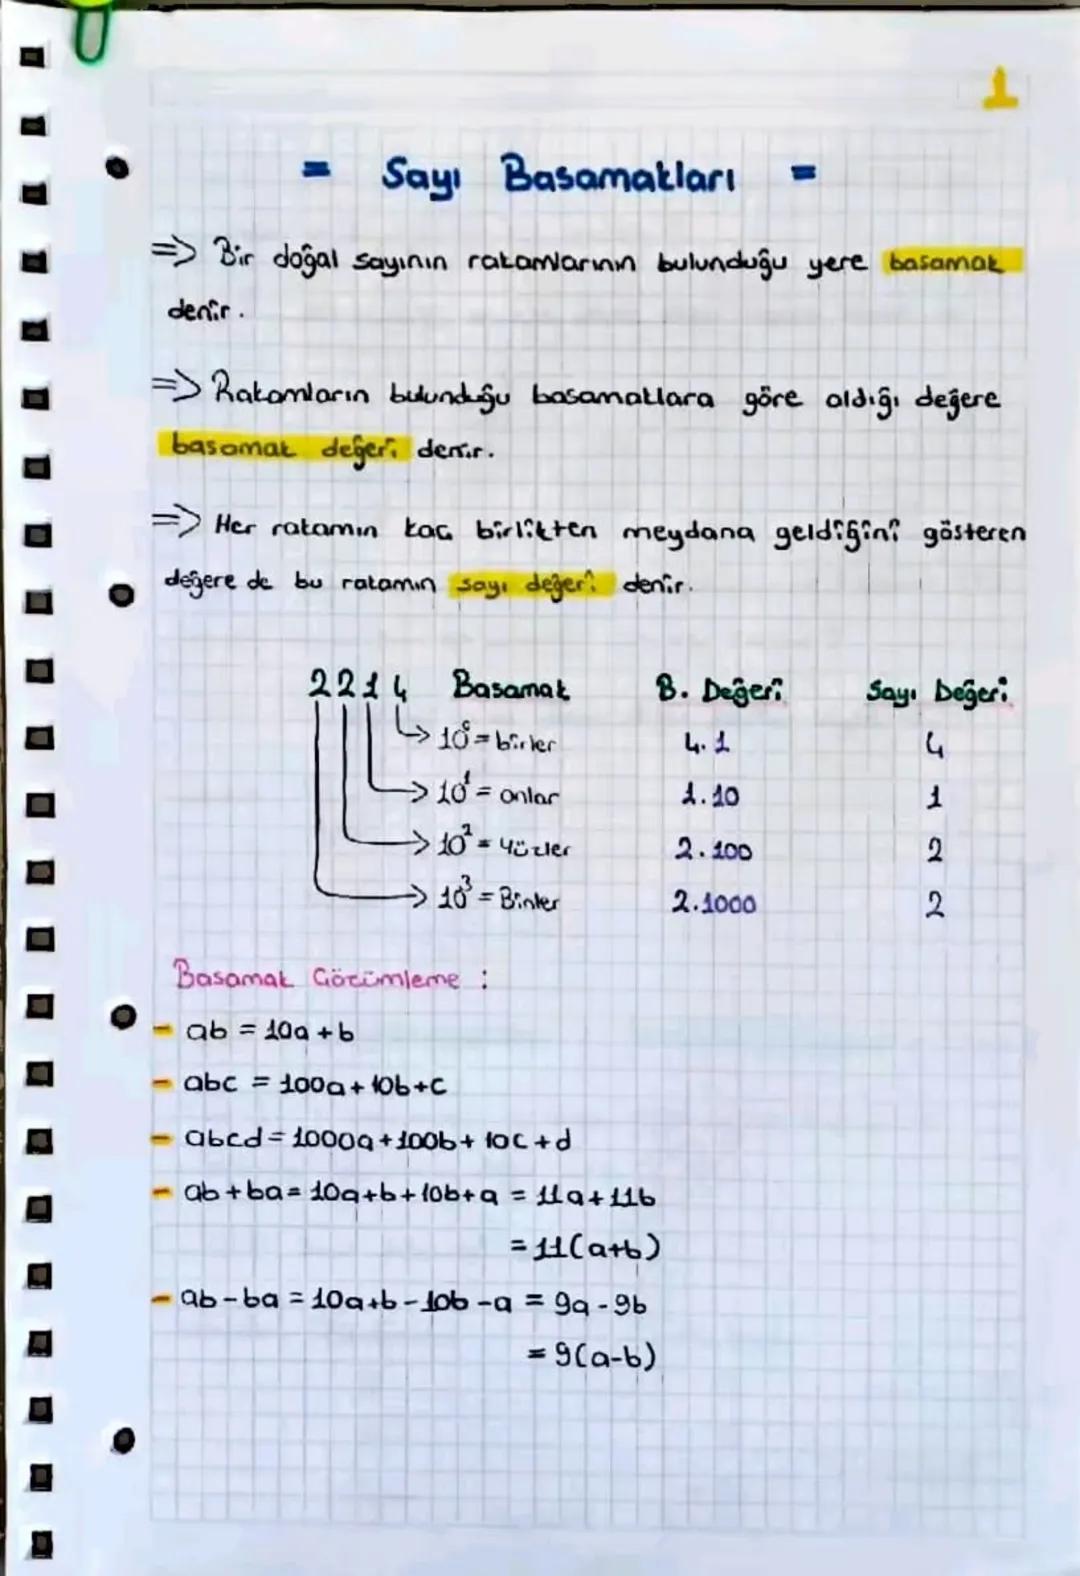 1
= Sayı Basamakları =
=> Bir doğal sayının rakamlarının bulunduğu yere basamak
denir.
=> Rakamların bulunduğu basamaklara göre aldığı değere
basamak değeri denir.
=> Her rakamın kaç birlikten meydana geldiğini gösteren
değere de bu rakamın sayı değeri denir.
2214 Basamak B. Değeri Sayı Değeri
→ 10⁰ = birler 4.1 4
→ 10¹ = onlar 1.10 1
→ 10² = Yüzler 2.100 2
→ 10³ = Binler 2.1000 2
Basamak Çözümleme :
- ab = 10a + b
- abc = 100a + 10b + c
- abcd = 1000a + 100b + 10c + d
- ab + ba = 10a + b + 10b + a = 11a + 11b
= 11(a+b)
- ab - ba = 10a + b - 10b - a = 9a - 9b
= 9(a-b)